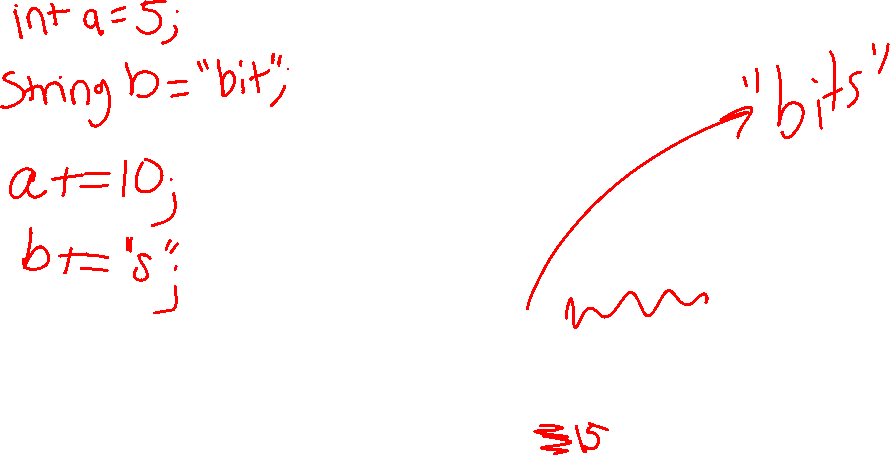 int a = 5;
String b = "bit";
a += 10;
b += "s";
"bits"
15